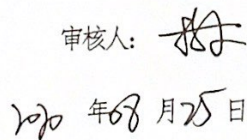 审核人:
2020 年08 月25 日